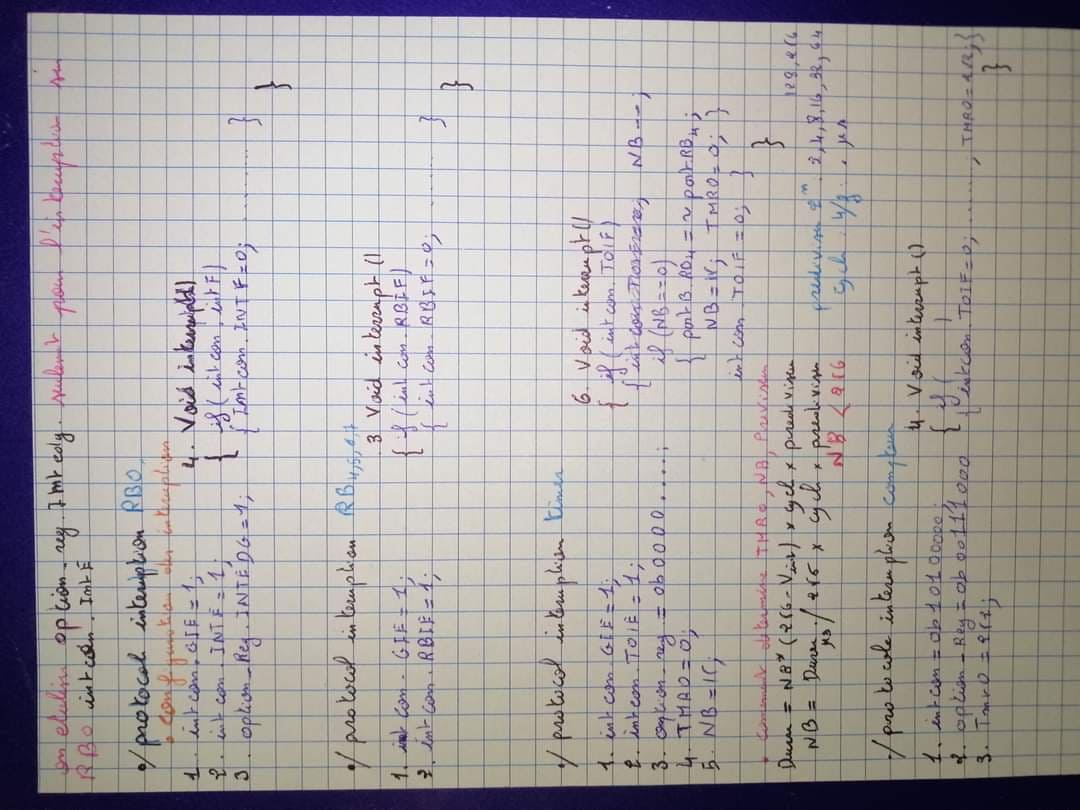 on élulin option-reg. Int edg. suivent pour l'interruption sur
RB0 intcon. IntF
°/ protocol interuption RB0.
• configuration des interuption
1. intcon.GIE=1;
2. intcon.INTE=1;
3. option_Reg.INTEDG=1;
4. Void interrupt()
{ if (intcon.intF)
{ Intcon.INTF=0; ......... }
}
°/ protocol interuption RB4,5,6,7
1. intcon.GIE=1;
2. intcon.RBIE=1;
3 Void interrupt()
{ if (intcon.RBIF)
{ intcon.RBIF=0; ....... }
}
°/ protocol interuption timer
1. intcon.GIE=1;
2. intcon.TOIE=1;
3. option reg = 0b0000.....;
4. TMR0=0;
5. NB=15;
6. Void interrupt()
{ if (intcon.TOIF)
{ NB--;
if (NB==0)
{ portB.RB4=~portRB4;
NB=15; TMR0=0; }
intcon.TOIF=0; }
}
• comment determine TMR0, NB, Préviseur
Duree = NB*(256-Vinit) x cycl x prediviseur
NB = Duree/256 x cycl x prediviseur
µs NB < 256
prediviseur 2^n. 2,4,8,16,32,64
128,256
cycl: 4/f: . µs
°/ protocole interuption compteur
1. intcon=0b10100000;
2. option-Reg=0b00111000
3. Tmr0=252;
4. Void interrupt()
{ if ( )
{ intcon.TOIF=0; ........; TMR0=252;}
}